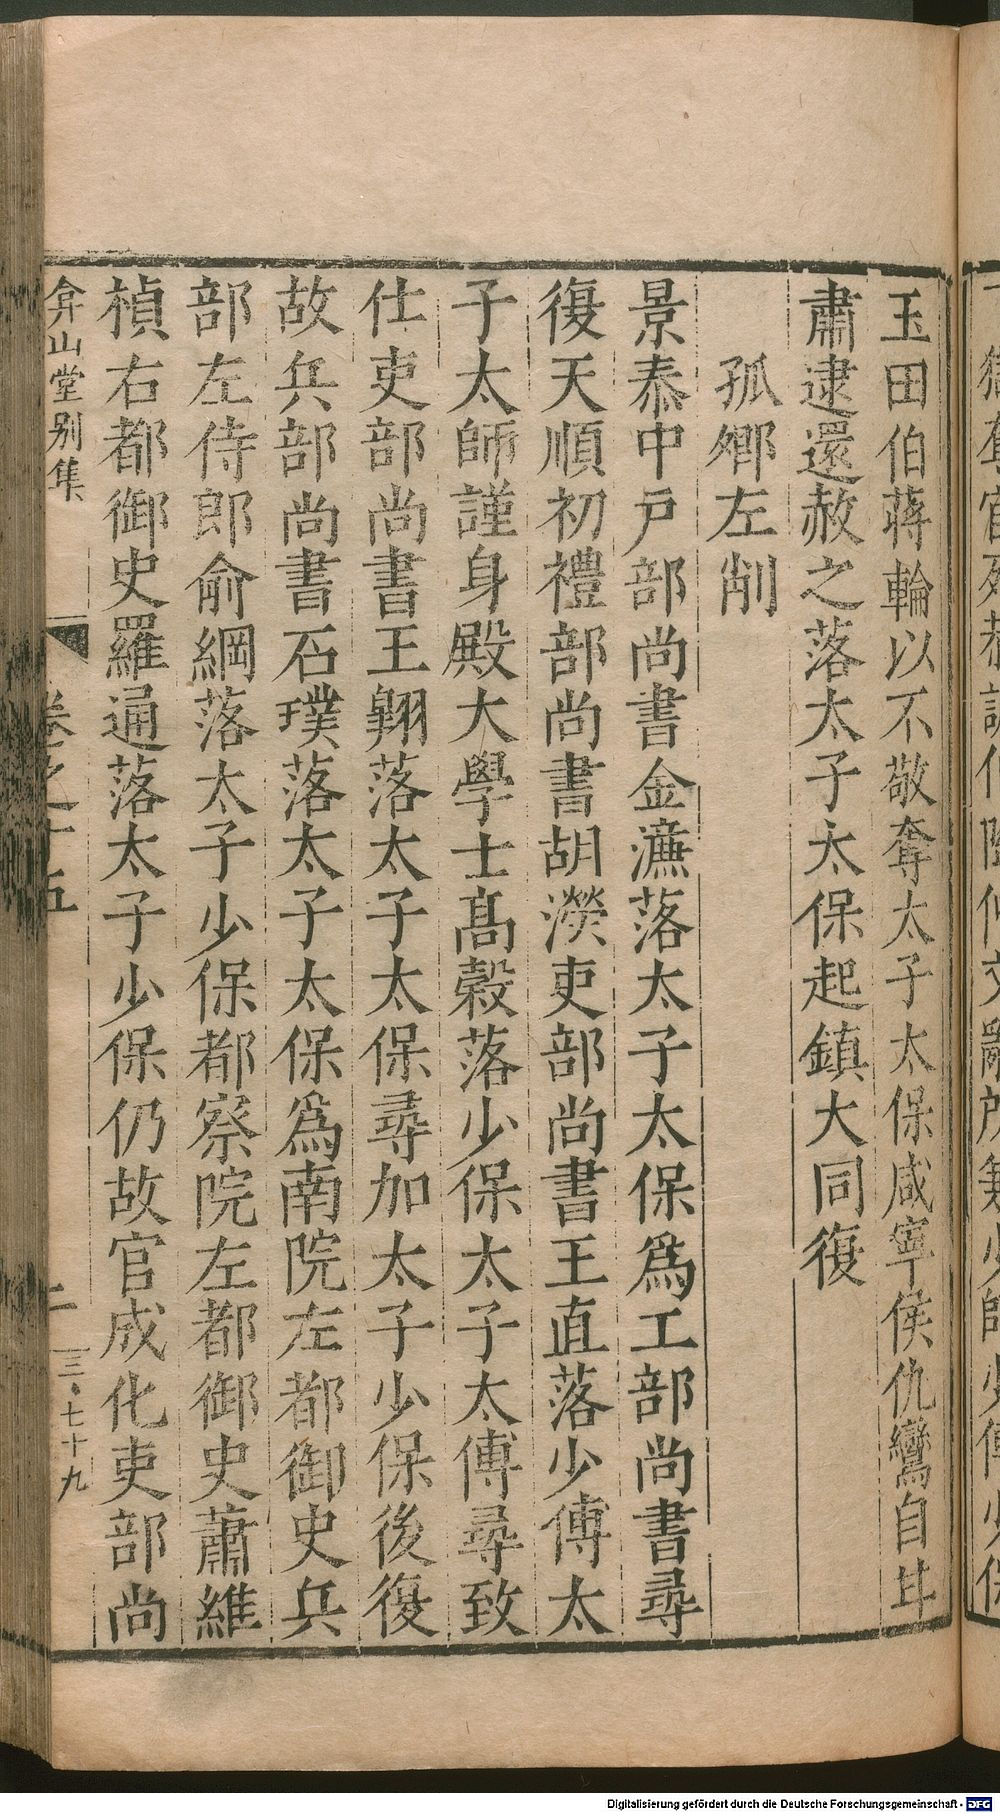 玉田伯蔣輪以不敬奪太子太保咸寧侯仇鸞自甘
肅逮還赦之落太子太保起鎮大同復
孤卿左削
景泰中戶部尚書金濂落太子太保爲工部尚書尋
復天順初禮部尚書胡濙吏部尚書王直落少傅太
子太師謹身殿大學士高穀落少保太子太傅尋致
仕吏部尚書王翱落太子太保尋加太子少保後復
故兵部尚書石璞落太子太保爲南院左都御史兵
部左侍郎俞綱落太子少保都察院左都御史蕭維
楨右都御史羅通落太子少保仍故官成化吏部尚
弇山堂別集 卷之十五 二 三·七十九
Digitalisierung gefördert durch die Deutsche Forschungsgemeinschaft - DFG